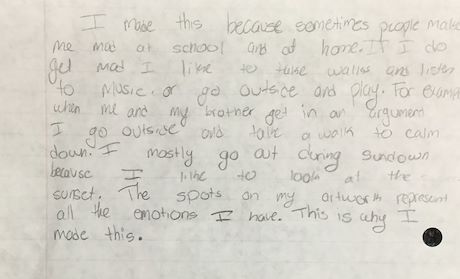 I made this because sometimes people make
me mad at school and at home. If I do
get mad I like to take walks and listen
to music. or go outside and play. For example
when me and my brother get in an argument
I go outside and take a walk to calm
down. I mostly go out during sundown
because I like to look at the
sunset. The spots on my artwork represent
all the emotions I have. This is why I
made this.